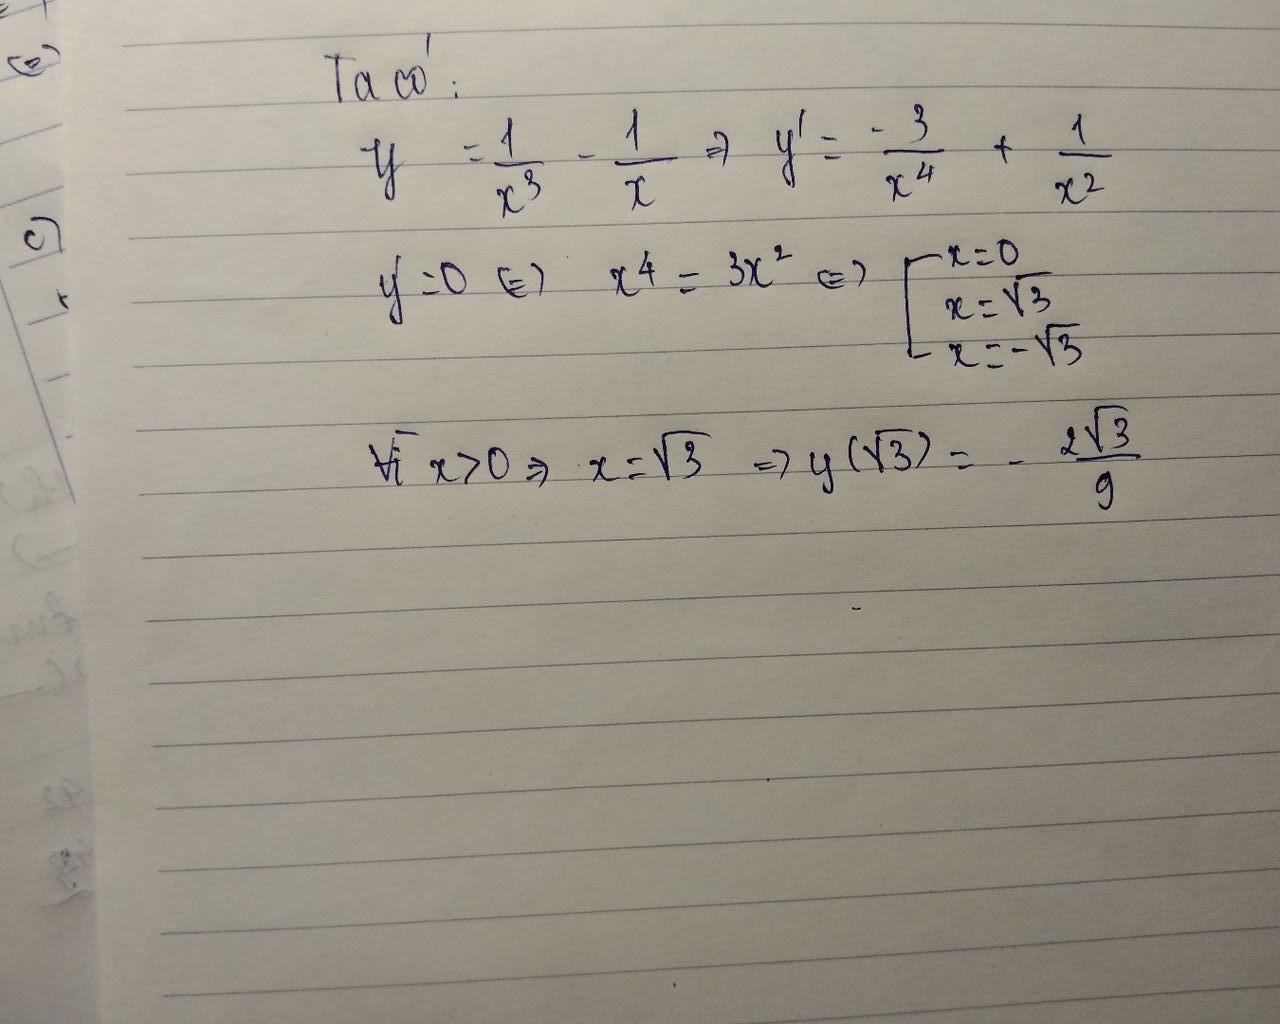 Ta có:
y = 1/x³ - 1/x ⇒ y' = -3/x⁴ + 1/x²
y' = 0 ⇔ x⁴ = 3x² ⇔ [ x = 0
x = √3
x = -√3
Vì x > 0 ⇒ x = √3 ⇒ y(√3) = - 2√3/9
c)